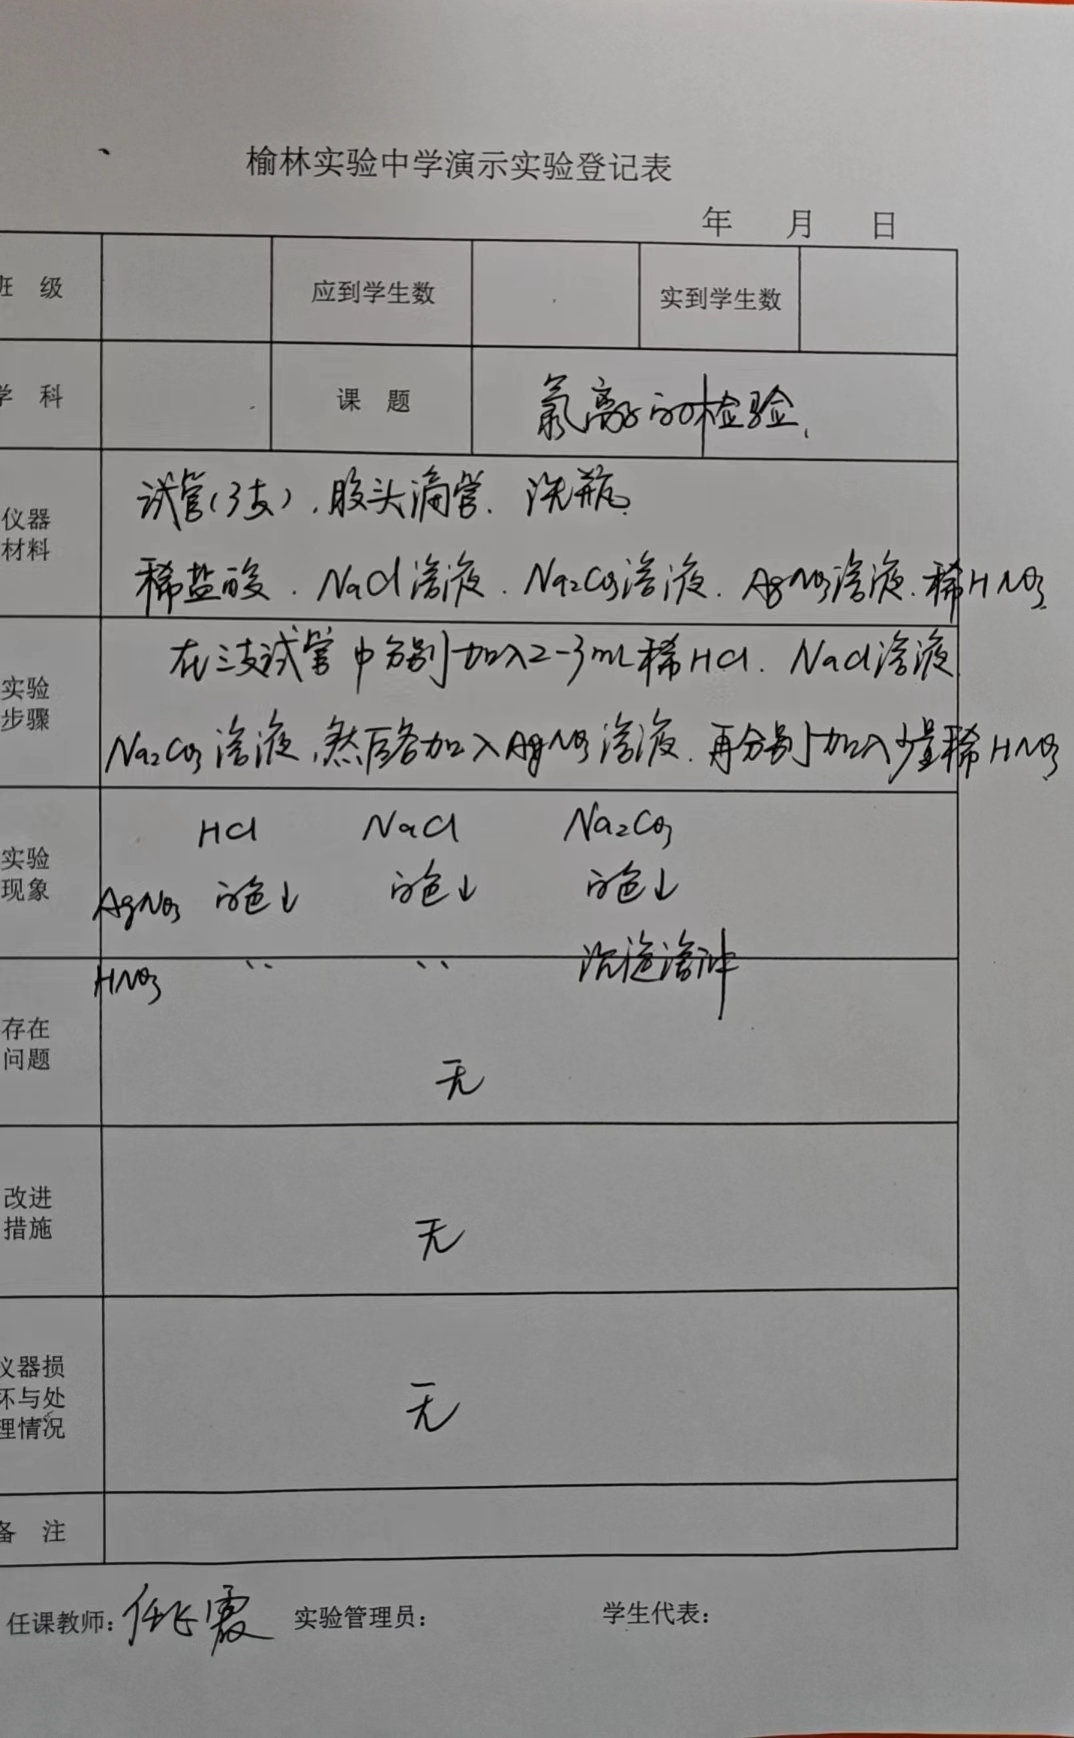 榆林实验中学演示实验登记表
年 月 日
班 级 应到学生数 实到学生数
学 科 课 题 氯离子的检验.
仪器
材料
试管(3支). 胶头滴管. 洗瓶.
稀盐酸. NaCl溶液. Na₂CO₃溶液. AgNO₃溶液. 稀HNO₃
实验
步骤
在三支试管中分别加入2-3mL稀HCl. NaCl溶液.
Na₂CO₃溶液, 然后各加入AgNO₃溶液. 再分别加入少量稀HNO₃
实验
现象
HCl NaCl Na₂CO₃
AgNO₃ 白色↓ 白色↓ 白色↓
HNO₃ 、、 、、 沉淀溶解
存在
问题
无
改进
措施
无
仪器损
坏与处
理情况
无
备 注
任课教师: 任飞霞 实验管理员: 学生代表: